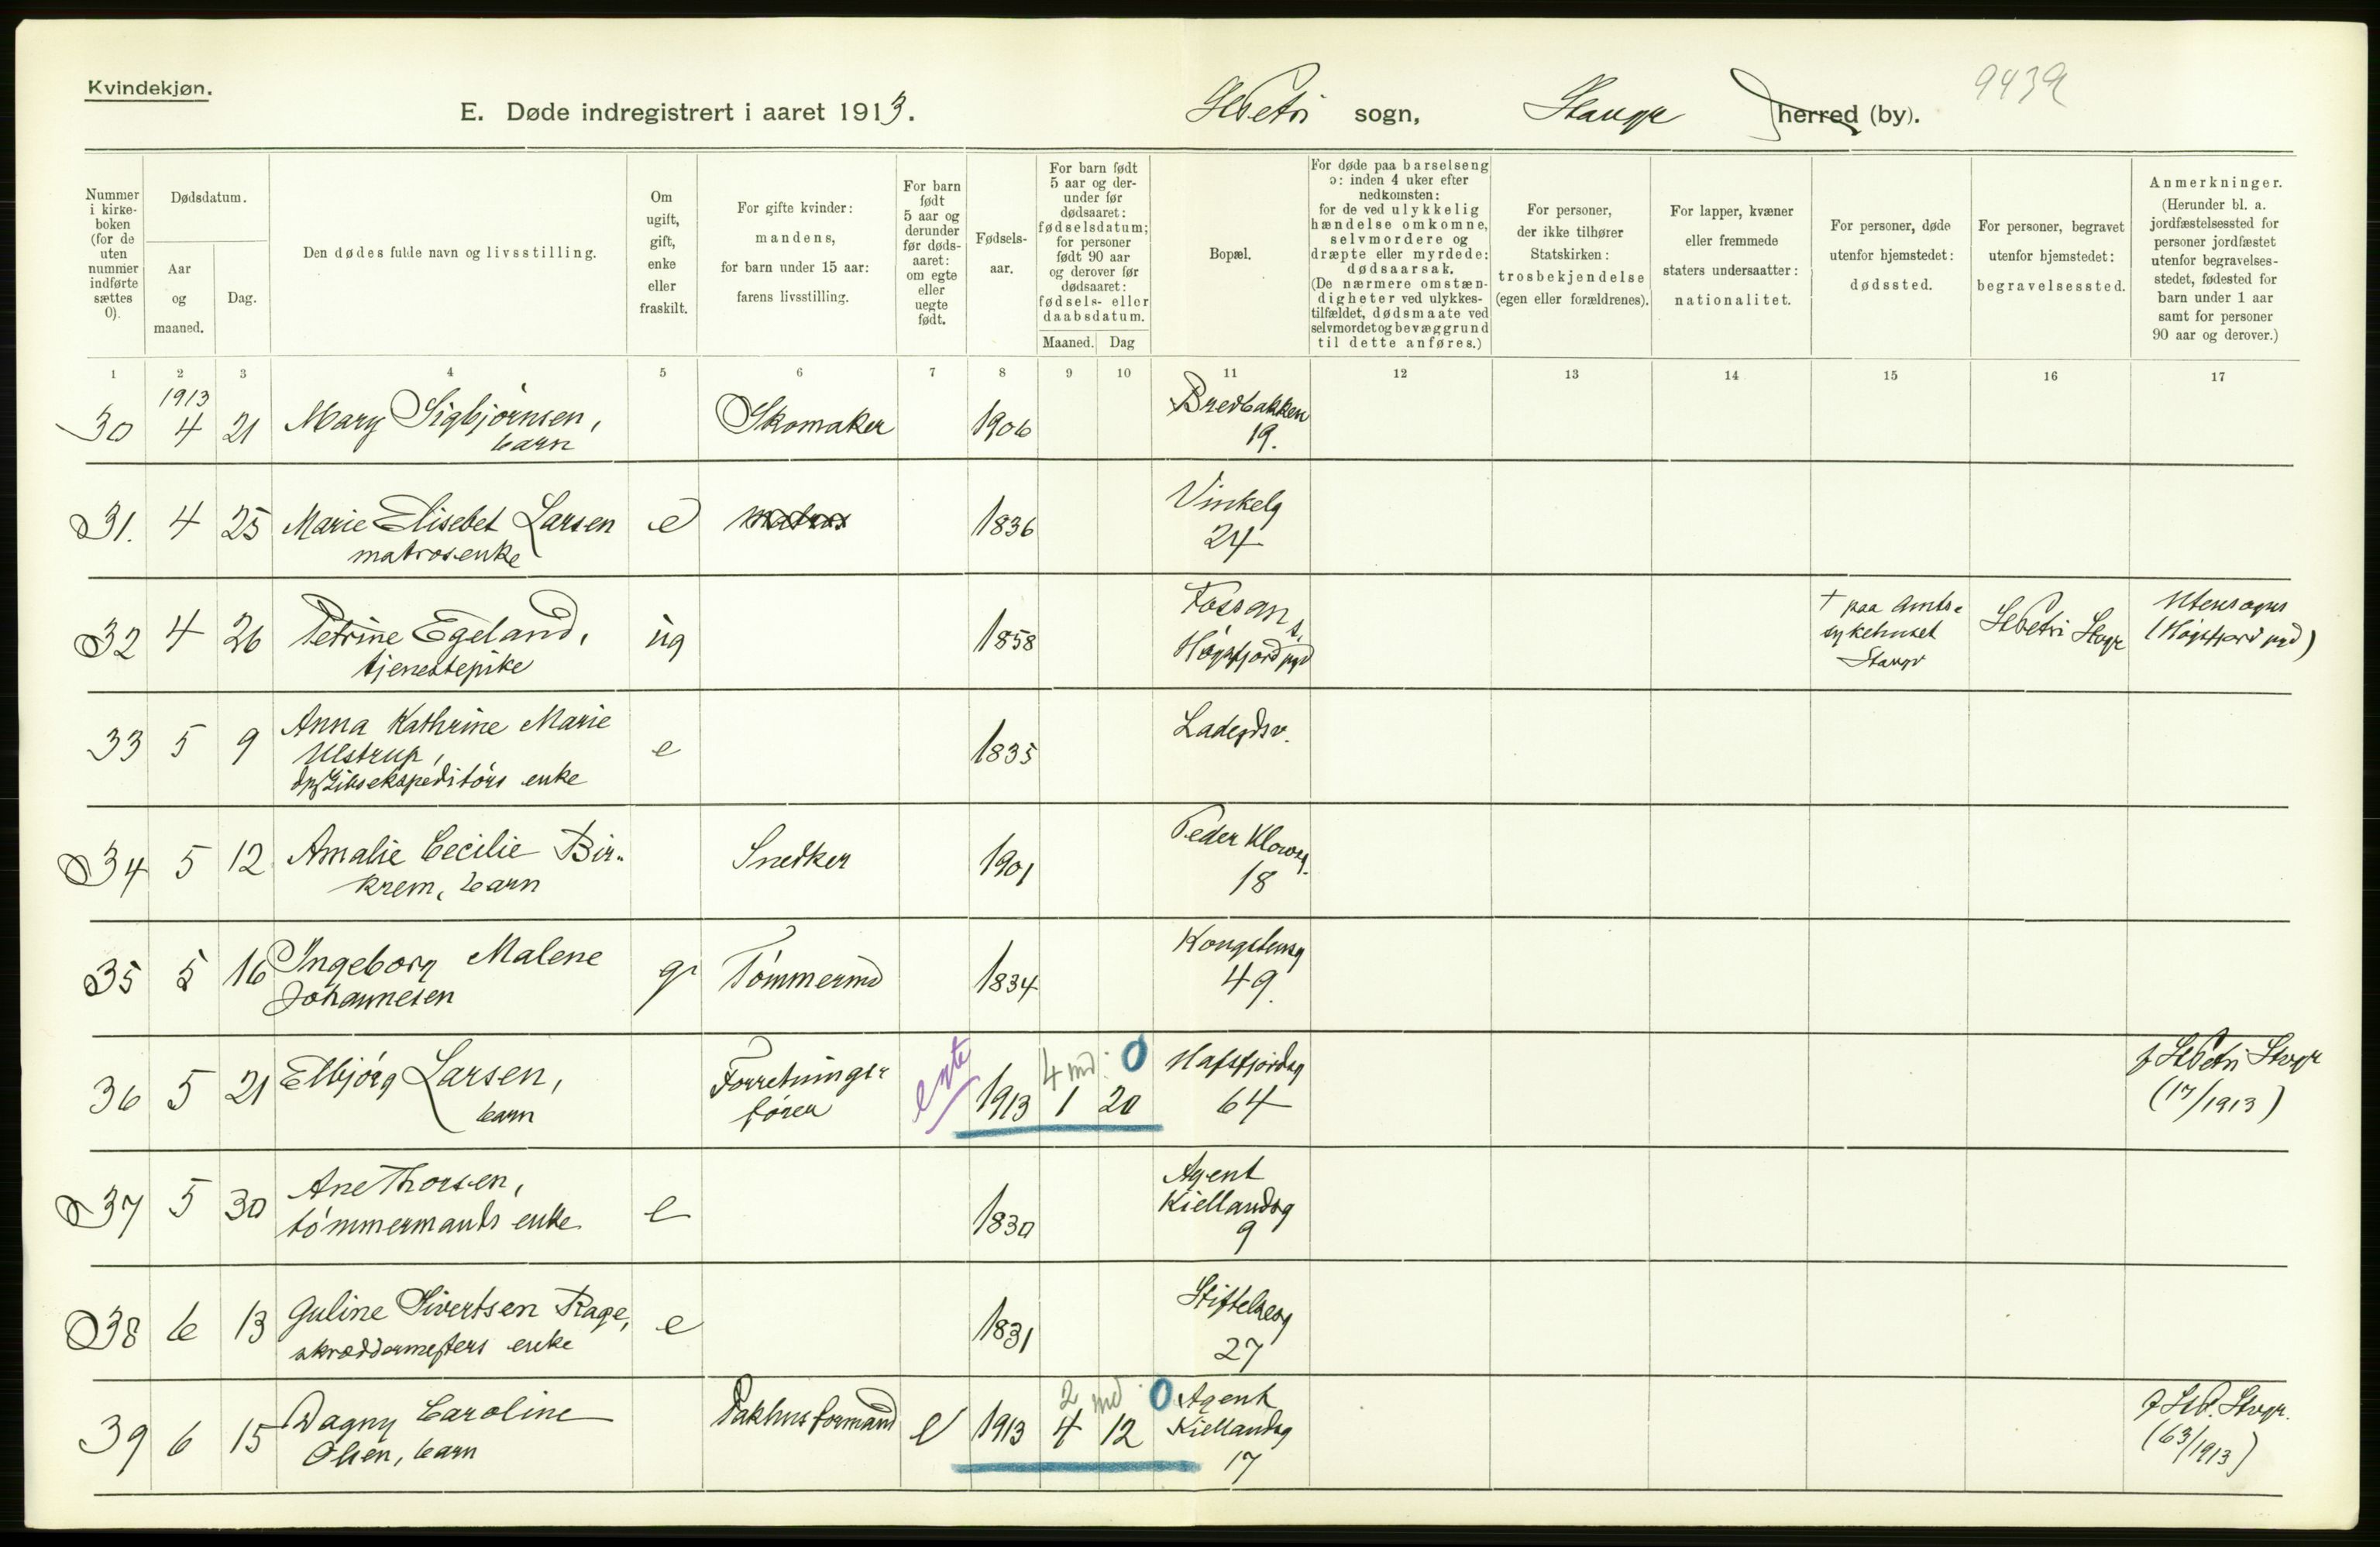 Kvindekjøn.
E. Døde indregistrert i aaret 1913.
St Petri sogn, Stavgr herred (by).
Nummer i kirke-boken (for de uten nummer indførte sættes 0).
Dødsdatum.
Aar og maaned.
Dag.
Den dødes fulde navn og livsstilling.
Om ugift, gift, enke eller fraskilt.
For gifte kvinder: mandens, for barn under 15 aar: farens livsstilling.
For barn født 5 aar og derunder før døds-aaret: om egte eller uegte født.
Fødsels-aar.
For barn født 5 aar og der-under før dødsaaret: fødselsdatum; for personer født 90 aar og derover før dødsaaret: fødsels- eller daabsdatum.
Maaned. Dag
Bopæl.
For døde paa barselseng ɔ: inden 4 uker efter nedkomsten: for de ved ulykkelig hændelse omkomne, selvmordere og dræpte eller myrdede: dødsaarsak. (De nærmere omstæn-digheter ved ulykkes-tilfældet, dødsmaate ved selvmordet og bevæggrund til dette anføres.)
For personer, der ikke tilhører Statskirken: trosbekjendelse (egen eller forældrenes).
For lapper, kvæner eller fremmede staters undersaatter: nationalitet.
For personer, døde utenfor hjemstedet: dødssted.
For personer, begravet utenfor hjemstedet: begravelsessted.
Anmerkninger. (Herunder bl. a. jordfæstelsessted for personer jordfæstet utenfor begravelses-stedet, fødested for barn under 1 aar samt for personer 90 aar og derover.)
1 2 3 4 5 6 7 8 9 10 11 12 13 14 15 16 17
1913
30 4 21 Mary Sigbjørnsen, Skomaker 1906 Bredbakken
barn 19.
31. 4 25 Marie Elisebet Larsen e matros 1836 Vinkelg
matrosenke 24
32 4 26 Petrine Egeland, ug 1858 Fossan,
tjenestepike Høgsfjord pgd
† paa Amts-
sykehuset
Stavgr
St Petri Stvgr
Utensogns
(Høgsfjord pgd)
33 5 9 Anna Kathrine Marie e 1835 Ladegdsv.
Ulstrup,
enke
34 5 12 Amalie Cecilie Bir- Snedker 1901 Peder Klowsg.
krem, barn 18
35 5 16 Ingeborg Malene g Tømmermd 1834 Kongstensg
Johannesen 49.
36 5 21 Elbjørg Larsen, Forretnings- egte 1913 4 md. 0 Hafsfjordsg
barn fører 1 20 64
f St Petri Stvgr
(17/1913)
37 5 30 Ane Thorsen, e 1830 Agent
tømmermands enke Kiellandsg
9
38 6 13 Guline Sivertsen Rage, e 1831 Stiftelsesg
skræddermesters enke 27
39 6 15 Dagny Caroline Pakhusformand e 1913 2 md. 0 Agent
Olsen, barn 4 12 Kiellandsg
17
f St P. Stvgr.
(63/1913)